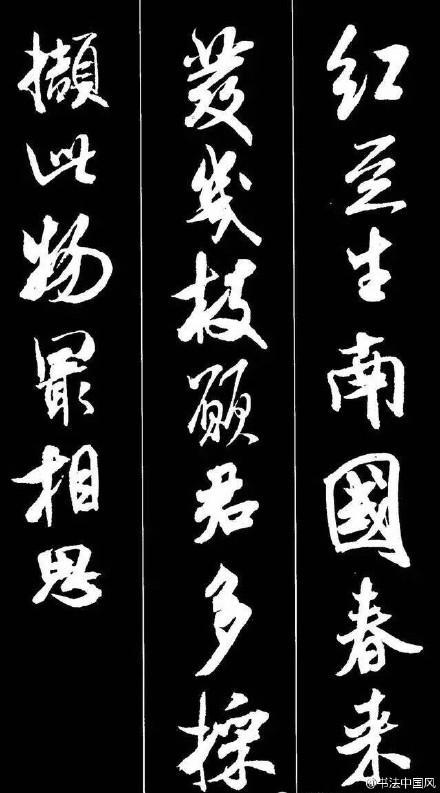 红豆生南國春来
發幾枝願君多採
擷此物最相思
@书法中国风